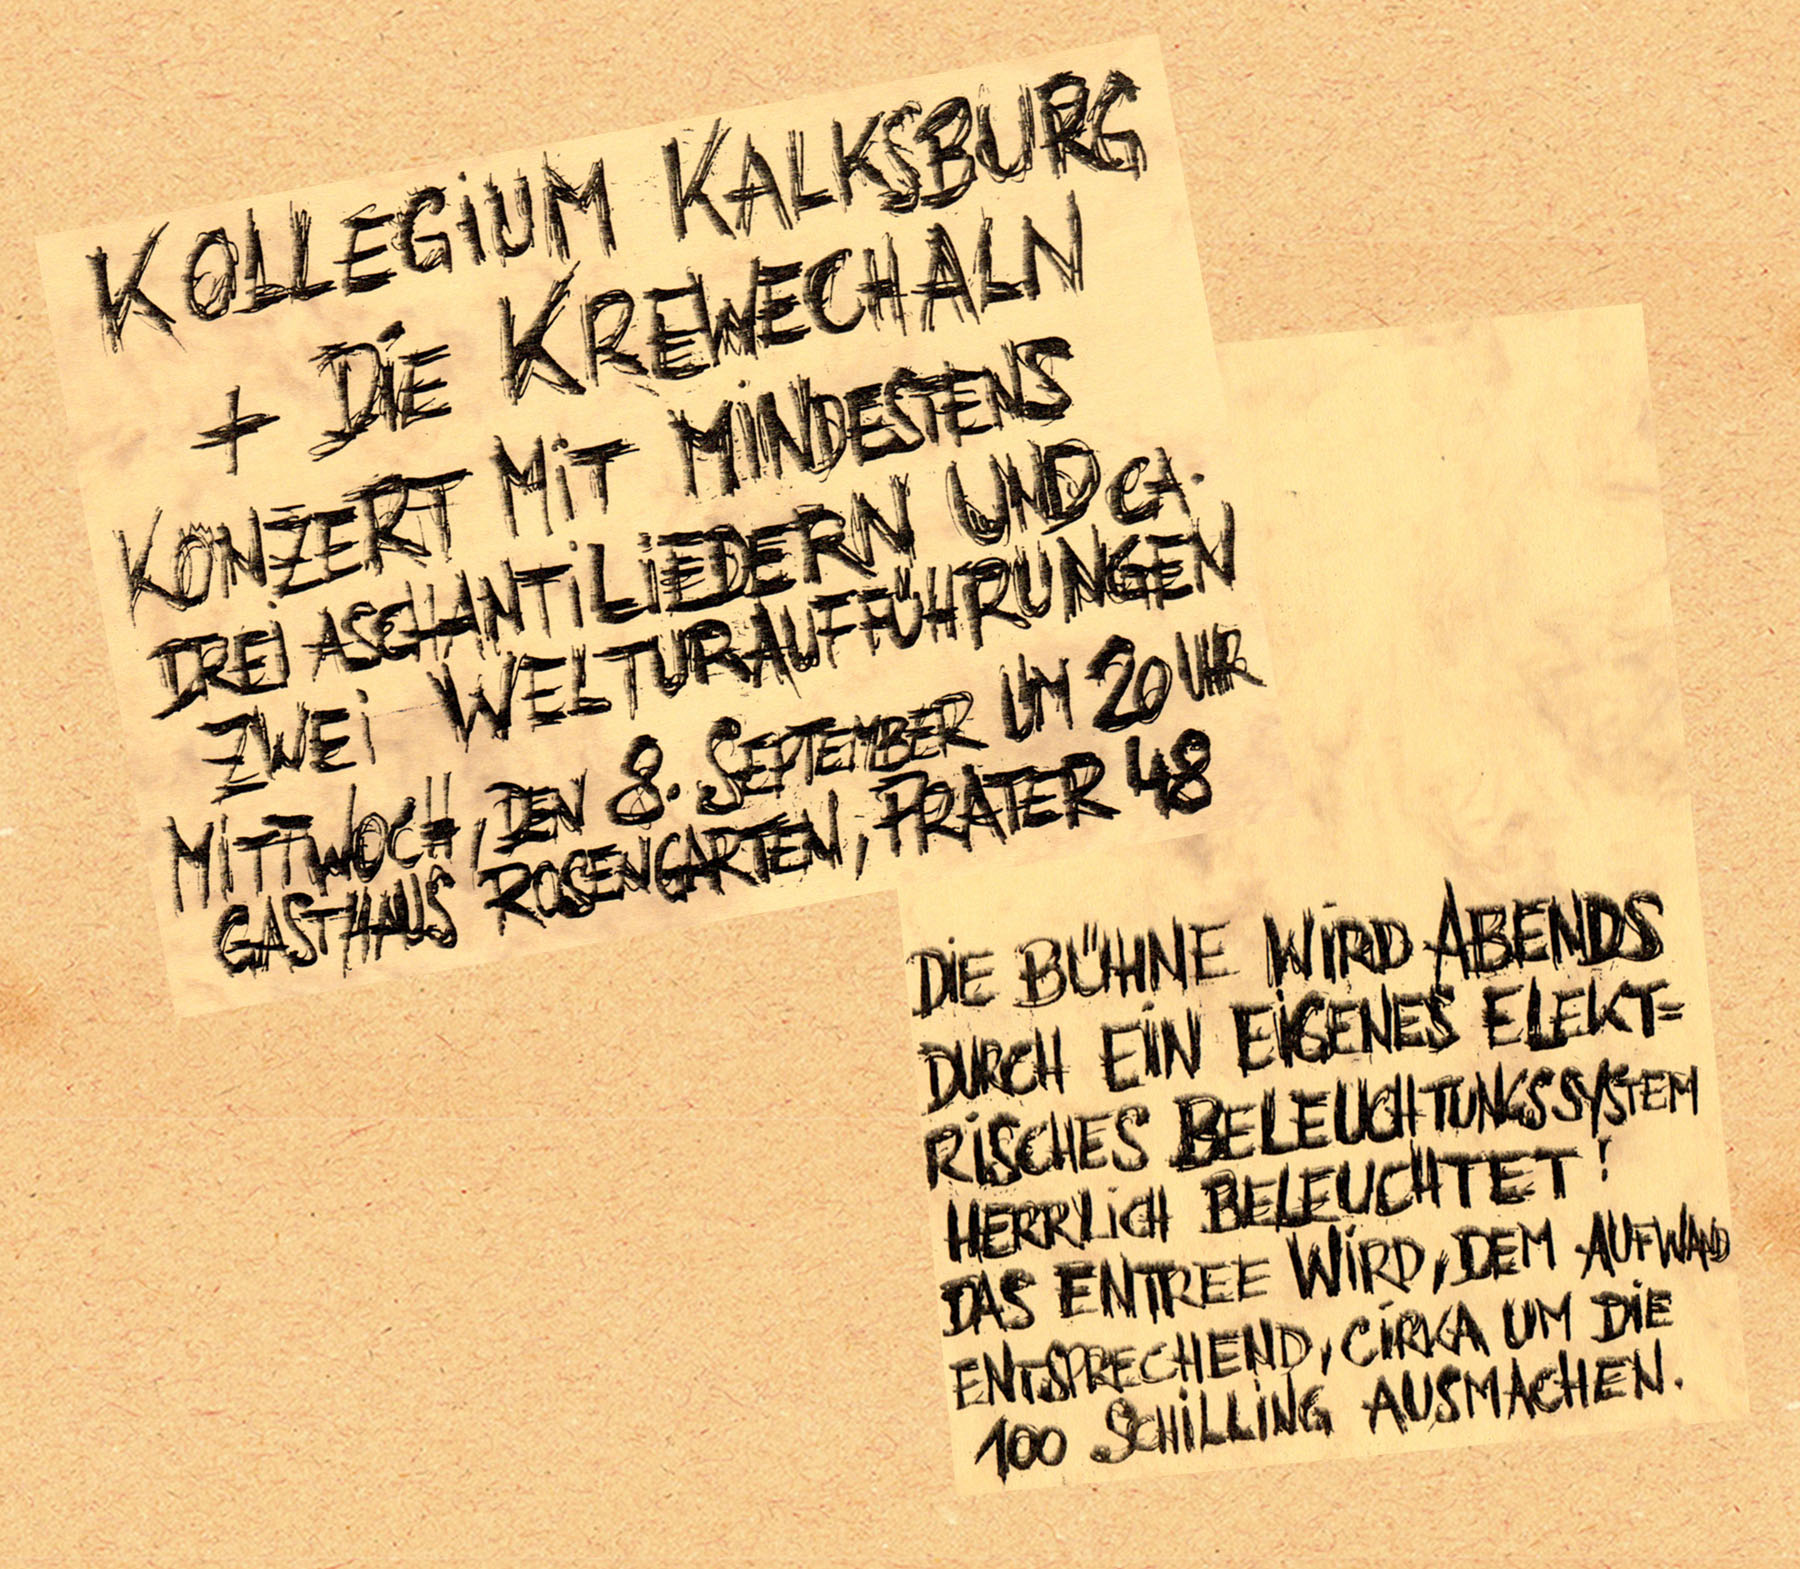 KOLLEGiUM KALKSBURG
+ DiE KREWECHALN
KONZERT MiT MiNDESTENS
DREi ASCHANTiLiEDERN UND CA.
ZWEi WELTURAUFFÜHRUNGEN
MiTTWOCH, DEN 8. SEPTEMBER UM 20 UHR
GASTHAUS ROSENGARTEN, PRATER 48
DiE BÜHNE WiRD ABENDS
DURCH EiN EiGENES ELEKT=
RiSCHES BELEUCHTUNGSSYSTEM
HERRLiCH BELEUCHTET!
DAS ENTREE WiRD, DEM AUFWAND
ENTSPRECHEND, CiRKA UM DiE
100 SCHiLLiNG AUSMACHEN.